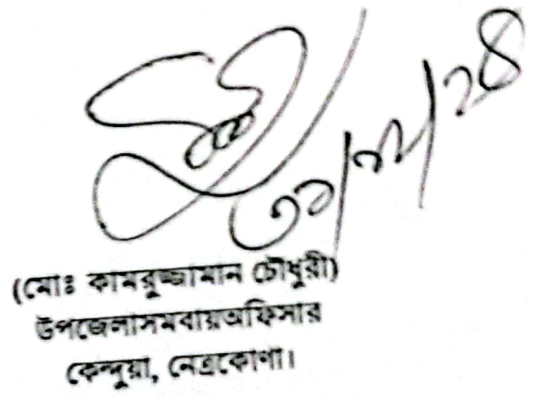 (মোঃ কামরুজ্জামান চৌধুরী)
উপজেলাসমবায়অফিসার
কেন্দুয়া, নেত্রকোণা।